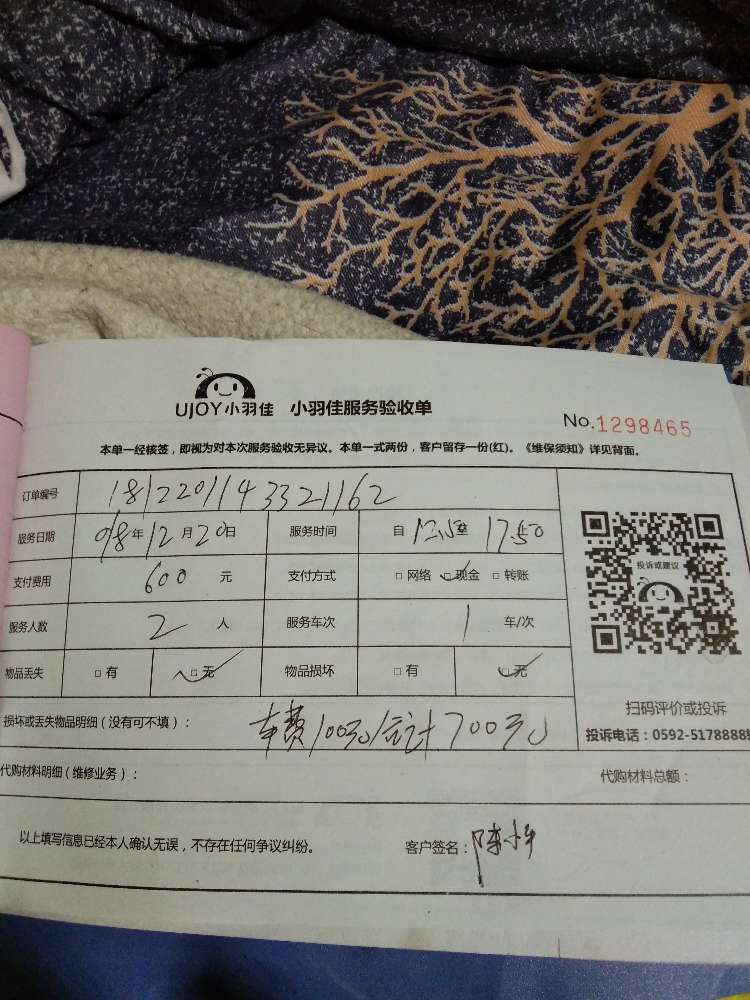 UJOY小羽佳 小羽佳服务验收单
No.1298465
本单一经核签，即视为对本次服务验收无异议。本单一式两份，客户留存一份(红)。《维保须知》详见背面。
订单编号 1812201143321162
服务日期 年12月20日 服务时间 自 至 17:50
支付费用 600 元 支付方式 □网络 □现金 □转账
服务人数 2 人 服务车次 1 车/次
物品丢失 □有 □无 物品损坏 □有 □无
投诉或建议
扫码评价或投诉
投诉电话：0592-5178888
损坏或丢失物品明细（没有可不填）： 车费100元/合计700元
代购材料明细（维修业务）： 代购材料总额：
以上填写信息已经本人确认无误，不存在任何争议纠纷。 客户签名：陈